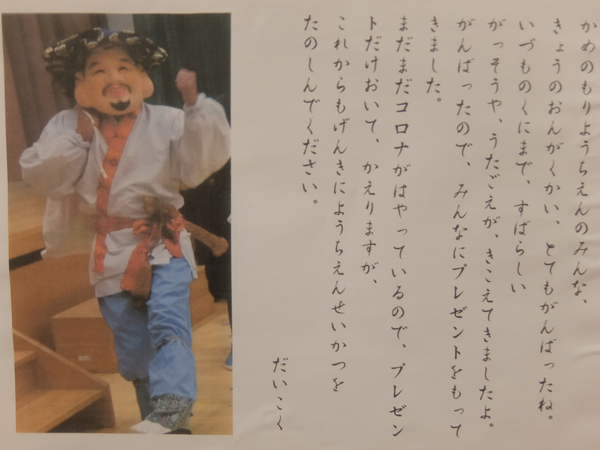 かめのもりようちえんのみんな、
きょうのおんがくかい、とてもがんばったね。
いづものくにまで、すばらしい
がっそうや、うたごえが、きこえてきましたよ。
がんばったので、みんなにプレゼントをもって
きました。
まだまだコロナがはやっているので、プレゼン
トだけおいて、かえりますが、
これからもげんきにようちえんせいかつを
たのしんでください。
だいこく